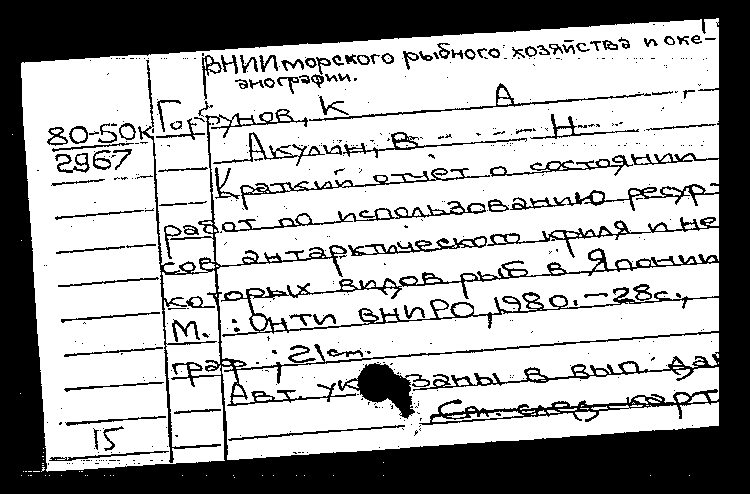 ВНИИ морского рыбного хозяйства и оке-
анографии.
80-50к
2967
Горбунов, К А
Акулин, В Н
Краткий отчет о состоянии
работ по использованию ресур-
сов антарктического криля и не
которых видов рыб в Японии
М. : ОНТИ ВНИРО, 1980. - 28с.,
граф. ; 21 cm.
Авт. ук заны в вып. дан
См. след карт
15